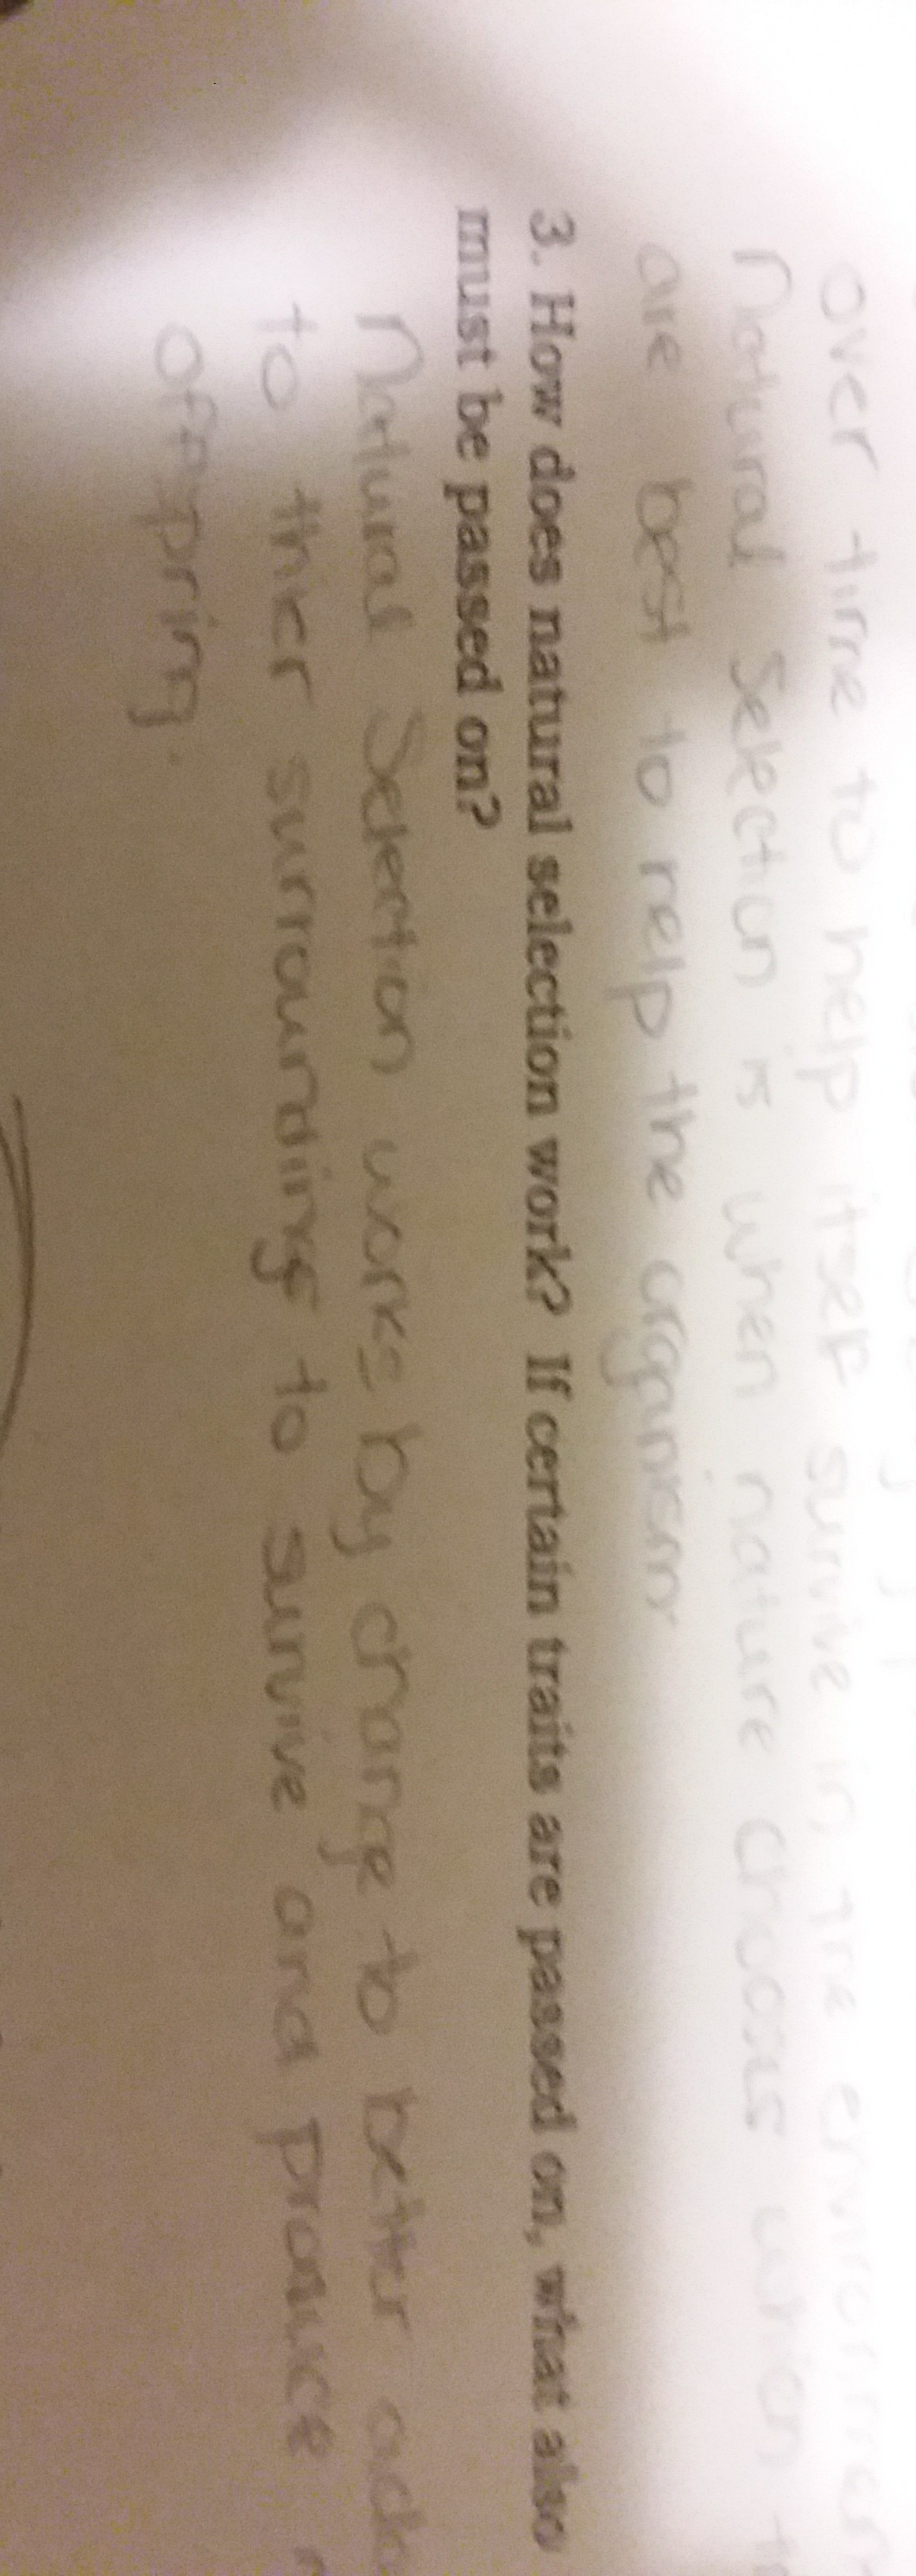 over time to help itself survive in the
Natural Selection is when nature chooses which
are best to help the organism
3. How does natural selection work? If certain traits are passed on, what also
must be passed on?
Natural Selection works by change to better
to thier surroundings to survive and produce
offspring.